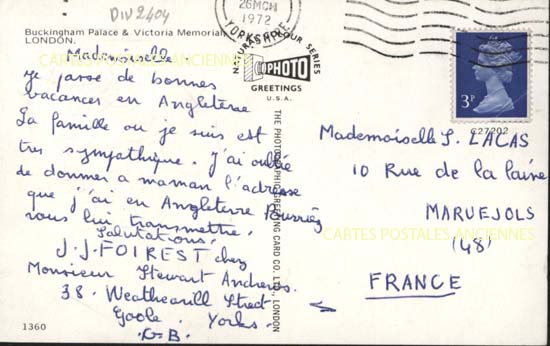 DIV2404
Buckingham Palace & Victoria Memorial,
LONDON.
CARTES POSTALES ANCIENNES
Mademoiselle
je passe de bonnes
vacances en Angleterre
La famille ou je suis est
tres sympathique. J'ai oublié
de donner a maman l'adresse
que j'ai en Angleterre Pourriez
vous lui transmettre.
Salutations.
J.J. FOIREST chez
Monsieur Stewart Andrews.
38. Weatherill Street
Goole. Yorks.
G-B.
1360
1972
YORKSHIRE
NATURAL COLOUR SERIES
PHOTO
GREETINGS
U.S.A.
THE PHOTOGRAPHIC GREETING CARD CO. LTD., LONDON
3P
C27202
Mademoiselle S. LACAS
10 Rue de la Paine
MARVEJOLS
CARTES POSTALES ANCIENNES
(48)
FRANCE